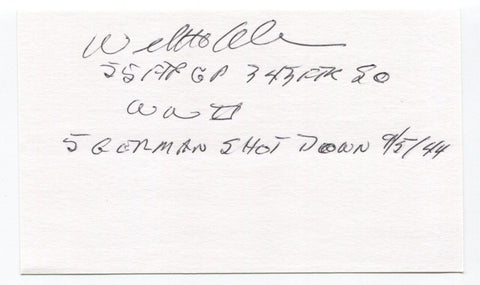 Will H Allen
55 FTR GP 343 FTR SQ
WW II
5 GERMAN SHOT DOWN 9/5/44